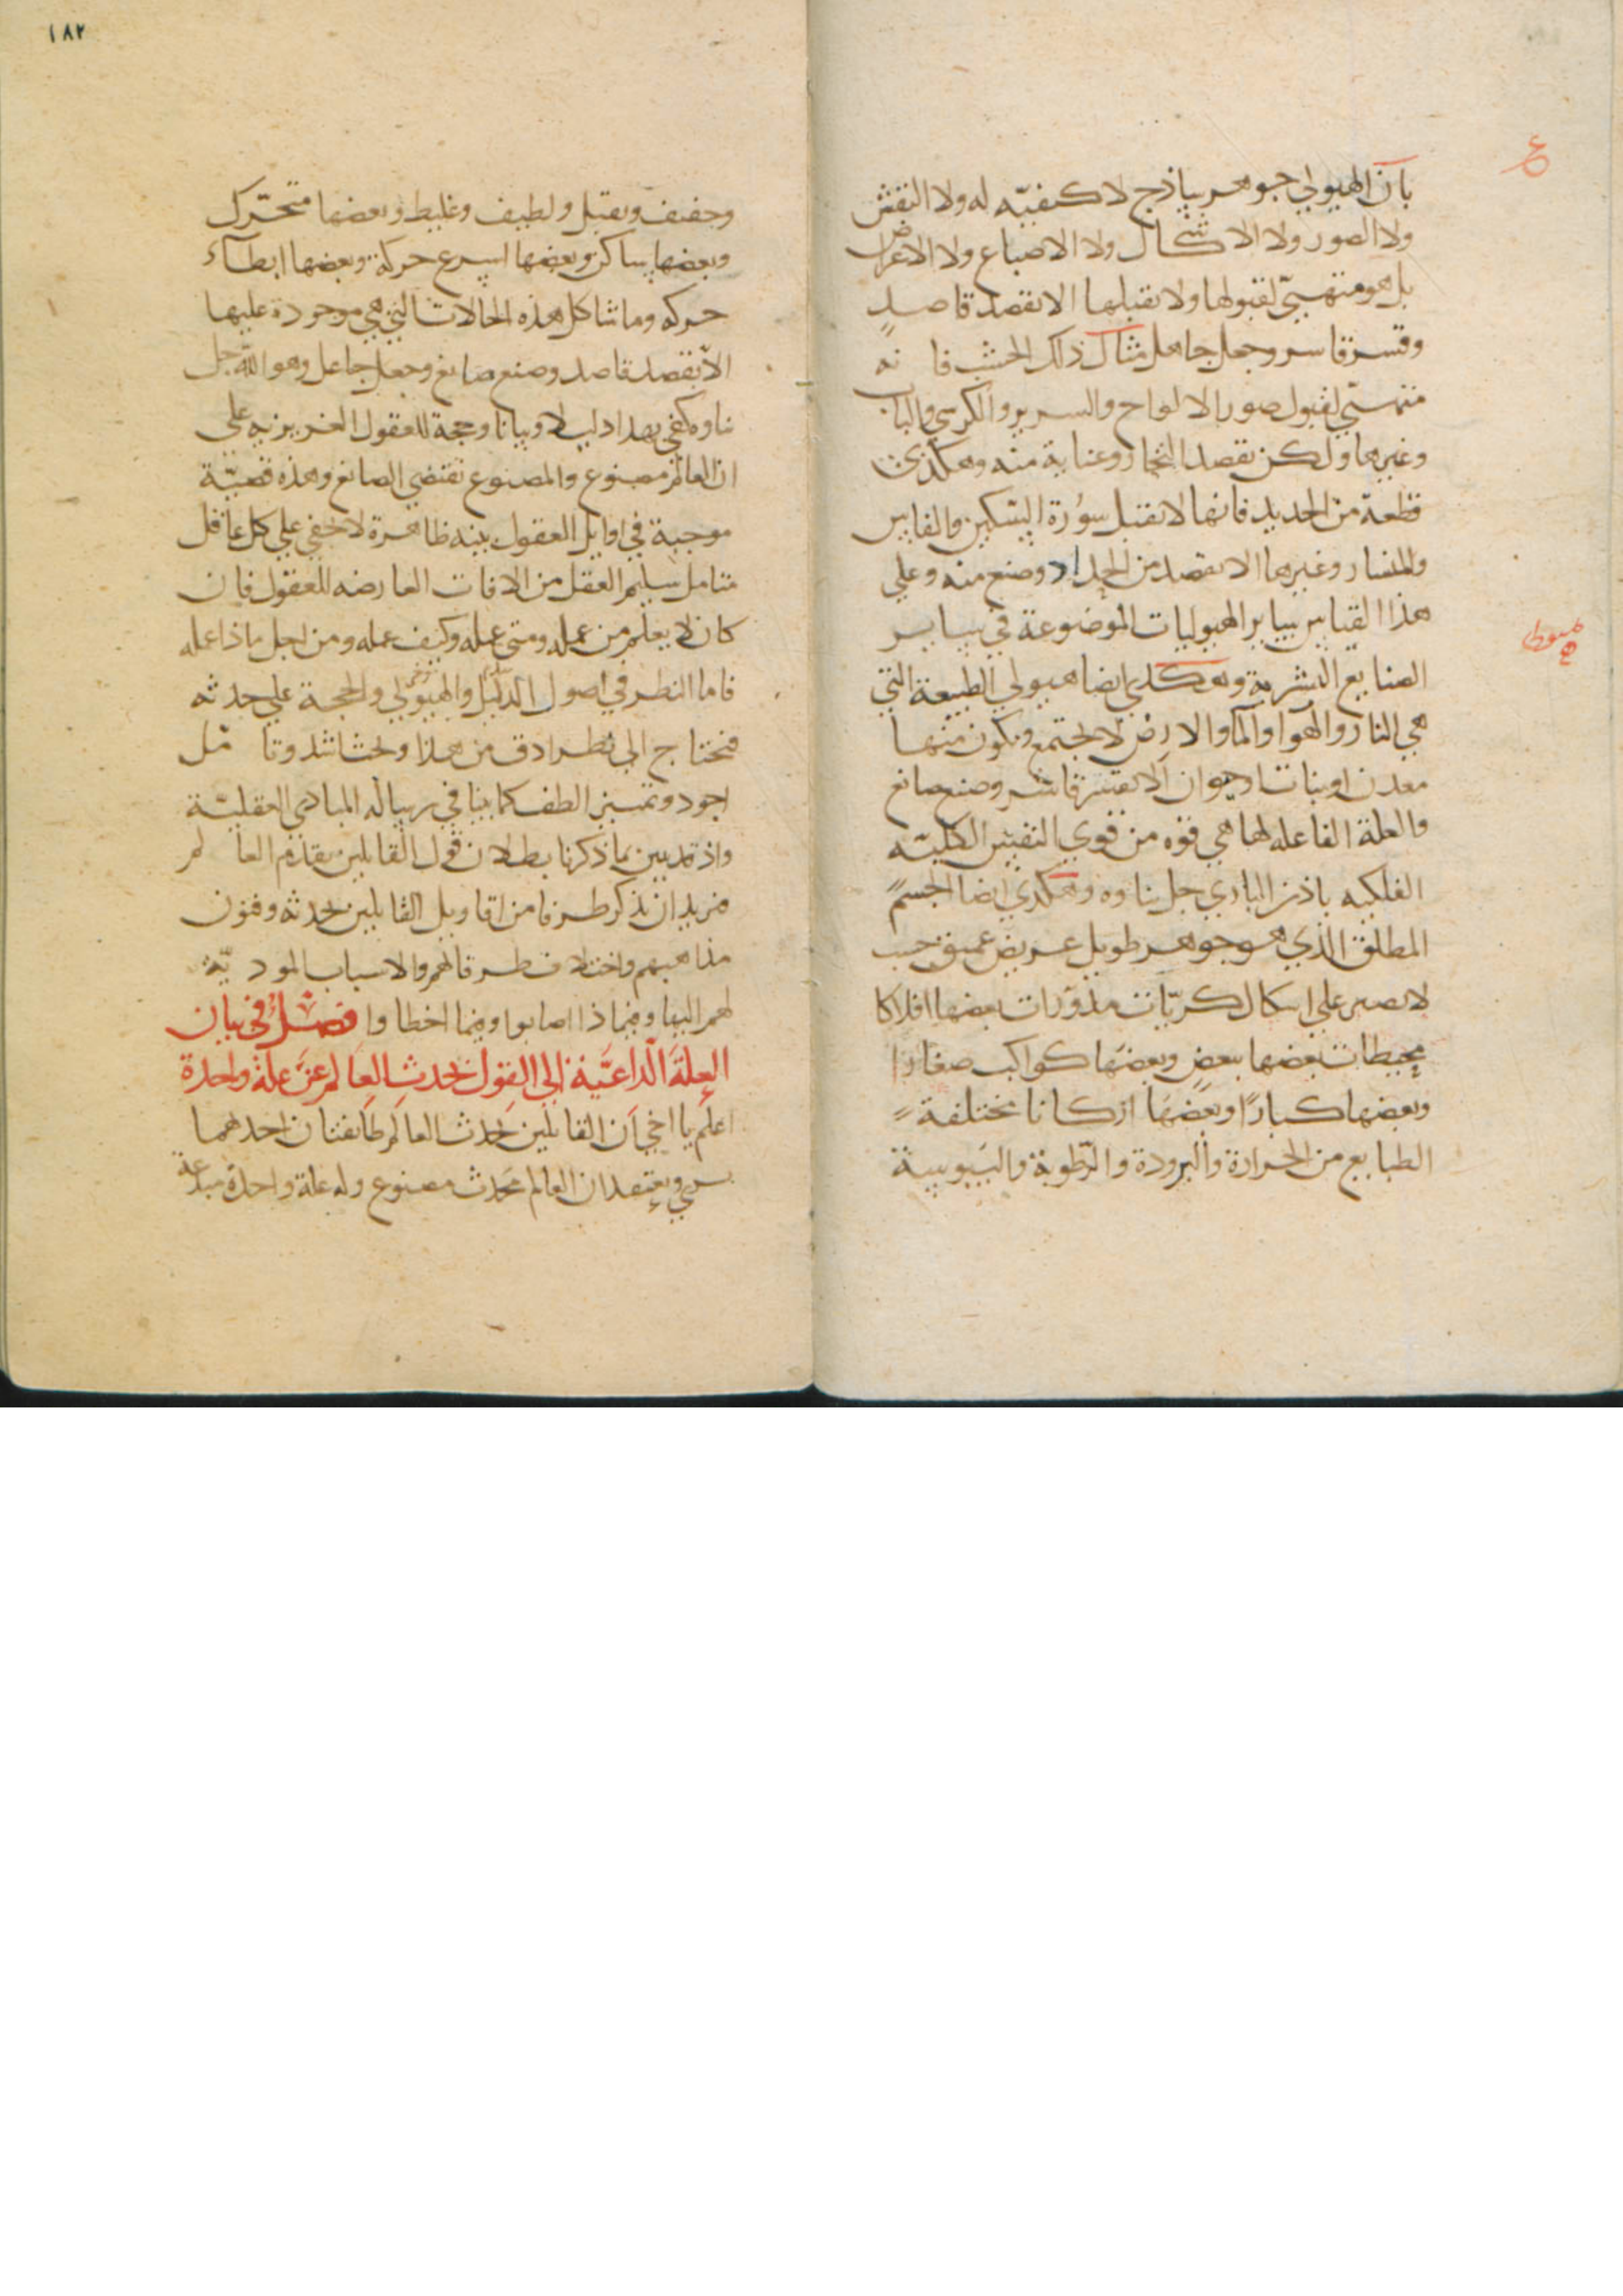 بان الهيولي جوهر ساذج لا كيفيّه له ولا النقش
ولا الصور ولا الاشكال ولا الاصباغ ولا الاعراض
بل هو متهيّئ لقبولها ولا يقبلها الا بقصد قاصدٍ
وقسر قاسر وجعل جاعل مثال ذلك الخشب فا نه
متهيّئ لقبول صور الالواح والسرير والكرسي والباب
وغيرها ولكن بقصد النجار وعناية منه وهكذي
قطعة من الحديد فانها لا تقبل سورة السّكين والفاس
والمنشار وغيرها الا بقصد من الحداد وصنع منه وعلي
هذا القياس ساير الهيوليات الموضوعة في ساير
الصنايع البشرية وهكذي ايضا هيولي الطبيعة التي
هي النار والهوا والما والارض لا تجتمع ويكون منها
معدن او نبات او حيوان الا بقسر قاسر وصنع صانع
والعلة الفاعله لها هي قوه من قوي النفس الكليّه
الفلكيه باذن الباري جل ثناوه وهكذي ايضا الجسم
المطلق الذي هو جوهر طويل عريض عميق حسب
لا يصير علي اشكال كريّات مدوّرات بعضها افلاكا
محيطات بعضها ببعض وبعضها كواكب صغارا
وبعضها كبارًا وبعضها اركانا مختلفة
الطبايع من الحرارة والبرودة والرّطوبة واليبوسة
١٨٢
وخفيف وثقيل ولطيف وغليظ وبعضها متحّرك
وبعضها ساكن وبعضها اسرع حركة وبعضها ابطآء
حركه وما شاكل هذه الحالات التي هي موجودة عليها
الا بقصد قاصد وصنع صانع وجعل جاعل وهو الله جل
ثناوه كفي بهذا دليلا وبيانا وحجة للعقول الغريزيه علي
ان العالم مصنوع والمصنوع يقتضي الصانع وهذه قضيّة
موجبة في اوايل العقول بينه ظاهرة لا تخفي علي كل عاقل
متامل سليم العقل من الافات العارضه للعقول فان
كان لا يعلم من عمله ومتي عمله وكيف عمله ومن اجل ماذا عمله
فاما النظر في اصول الدليل والهيولي والحجة علي حدثه
فيحتاج الي نظر ادق من هذا وبحث اشد وتا مل
اجود وتمييز الطف كما بينا في رساله المبادي العقليّة
واذ قد تبين بما ذكرنا بطلان قول القايلين بقدم العا لم
فنريد ان نذكر طرفا من اقاويل القايلين بحدثه وفنون
مذاهبهم واختلاف طرقاتهم والاسباب المود يّة
لهم اليها وفيما ذا اصابوا وفيما اخطاوا فصل في بيان
العلة الداعيّة الي القول بحدث العالم عن علة واحدة
اعلم يا اخي ان القايلين بحدث العالم طايفتان احدهما
يري ويعتقد ان العالم محدث مصنوع وله علة واحدة مبدعة